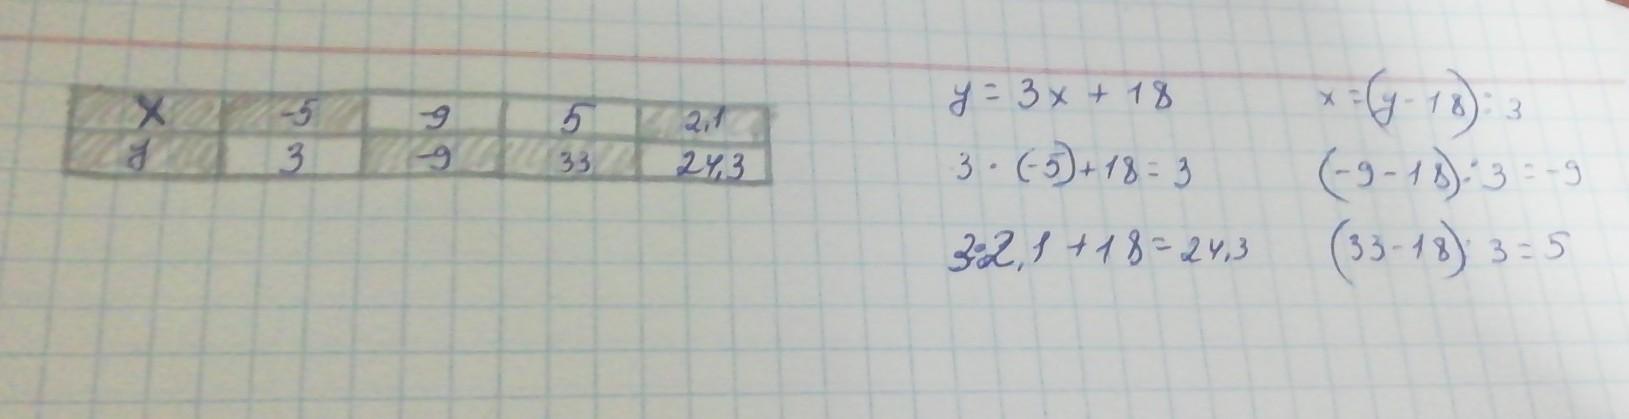 x -5 -9 5 2,1
y 3 -9 33 24,3
y = 3x + 18
3 · (-5) + 18 = 3
3·2,1 + 18 = 24,3
x = (y - 18) : 3
(-9 - 18) : 3 = -9
(33 - 18) : 3 = 5